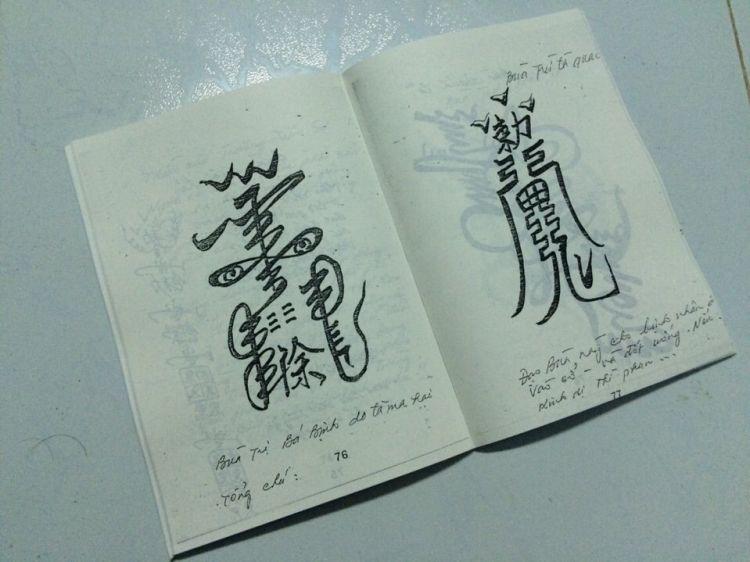 除
Bùa Trị Bá Bịnh do tà ma hại
76
Tổng chú :
Bùa Trừ tà quái
勅
Đạo Bùa này cho bịnh nhân
vào cổ và đốt uống. Nếu
thì
77